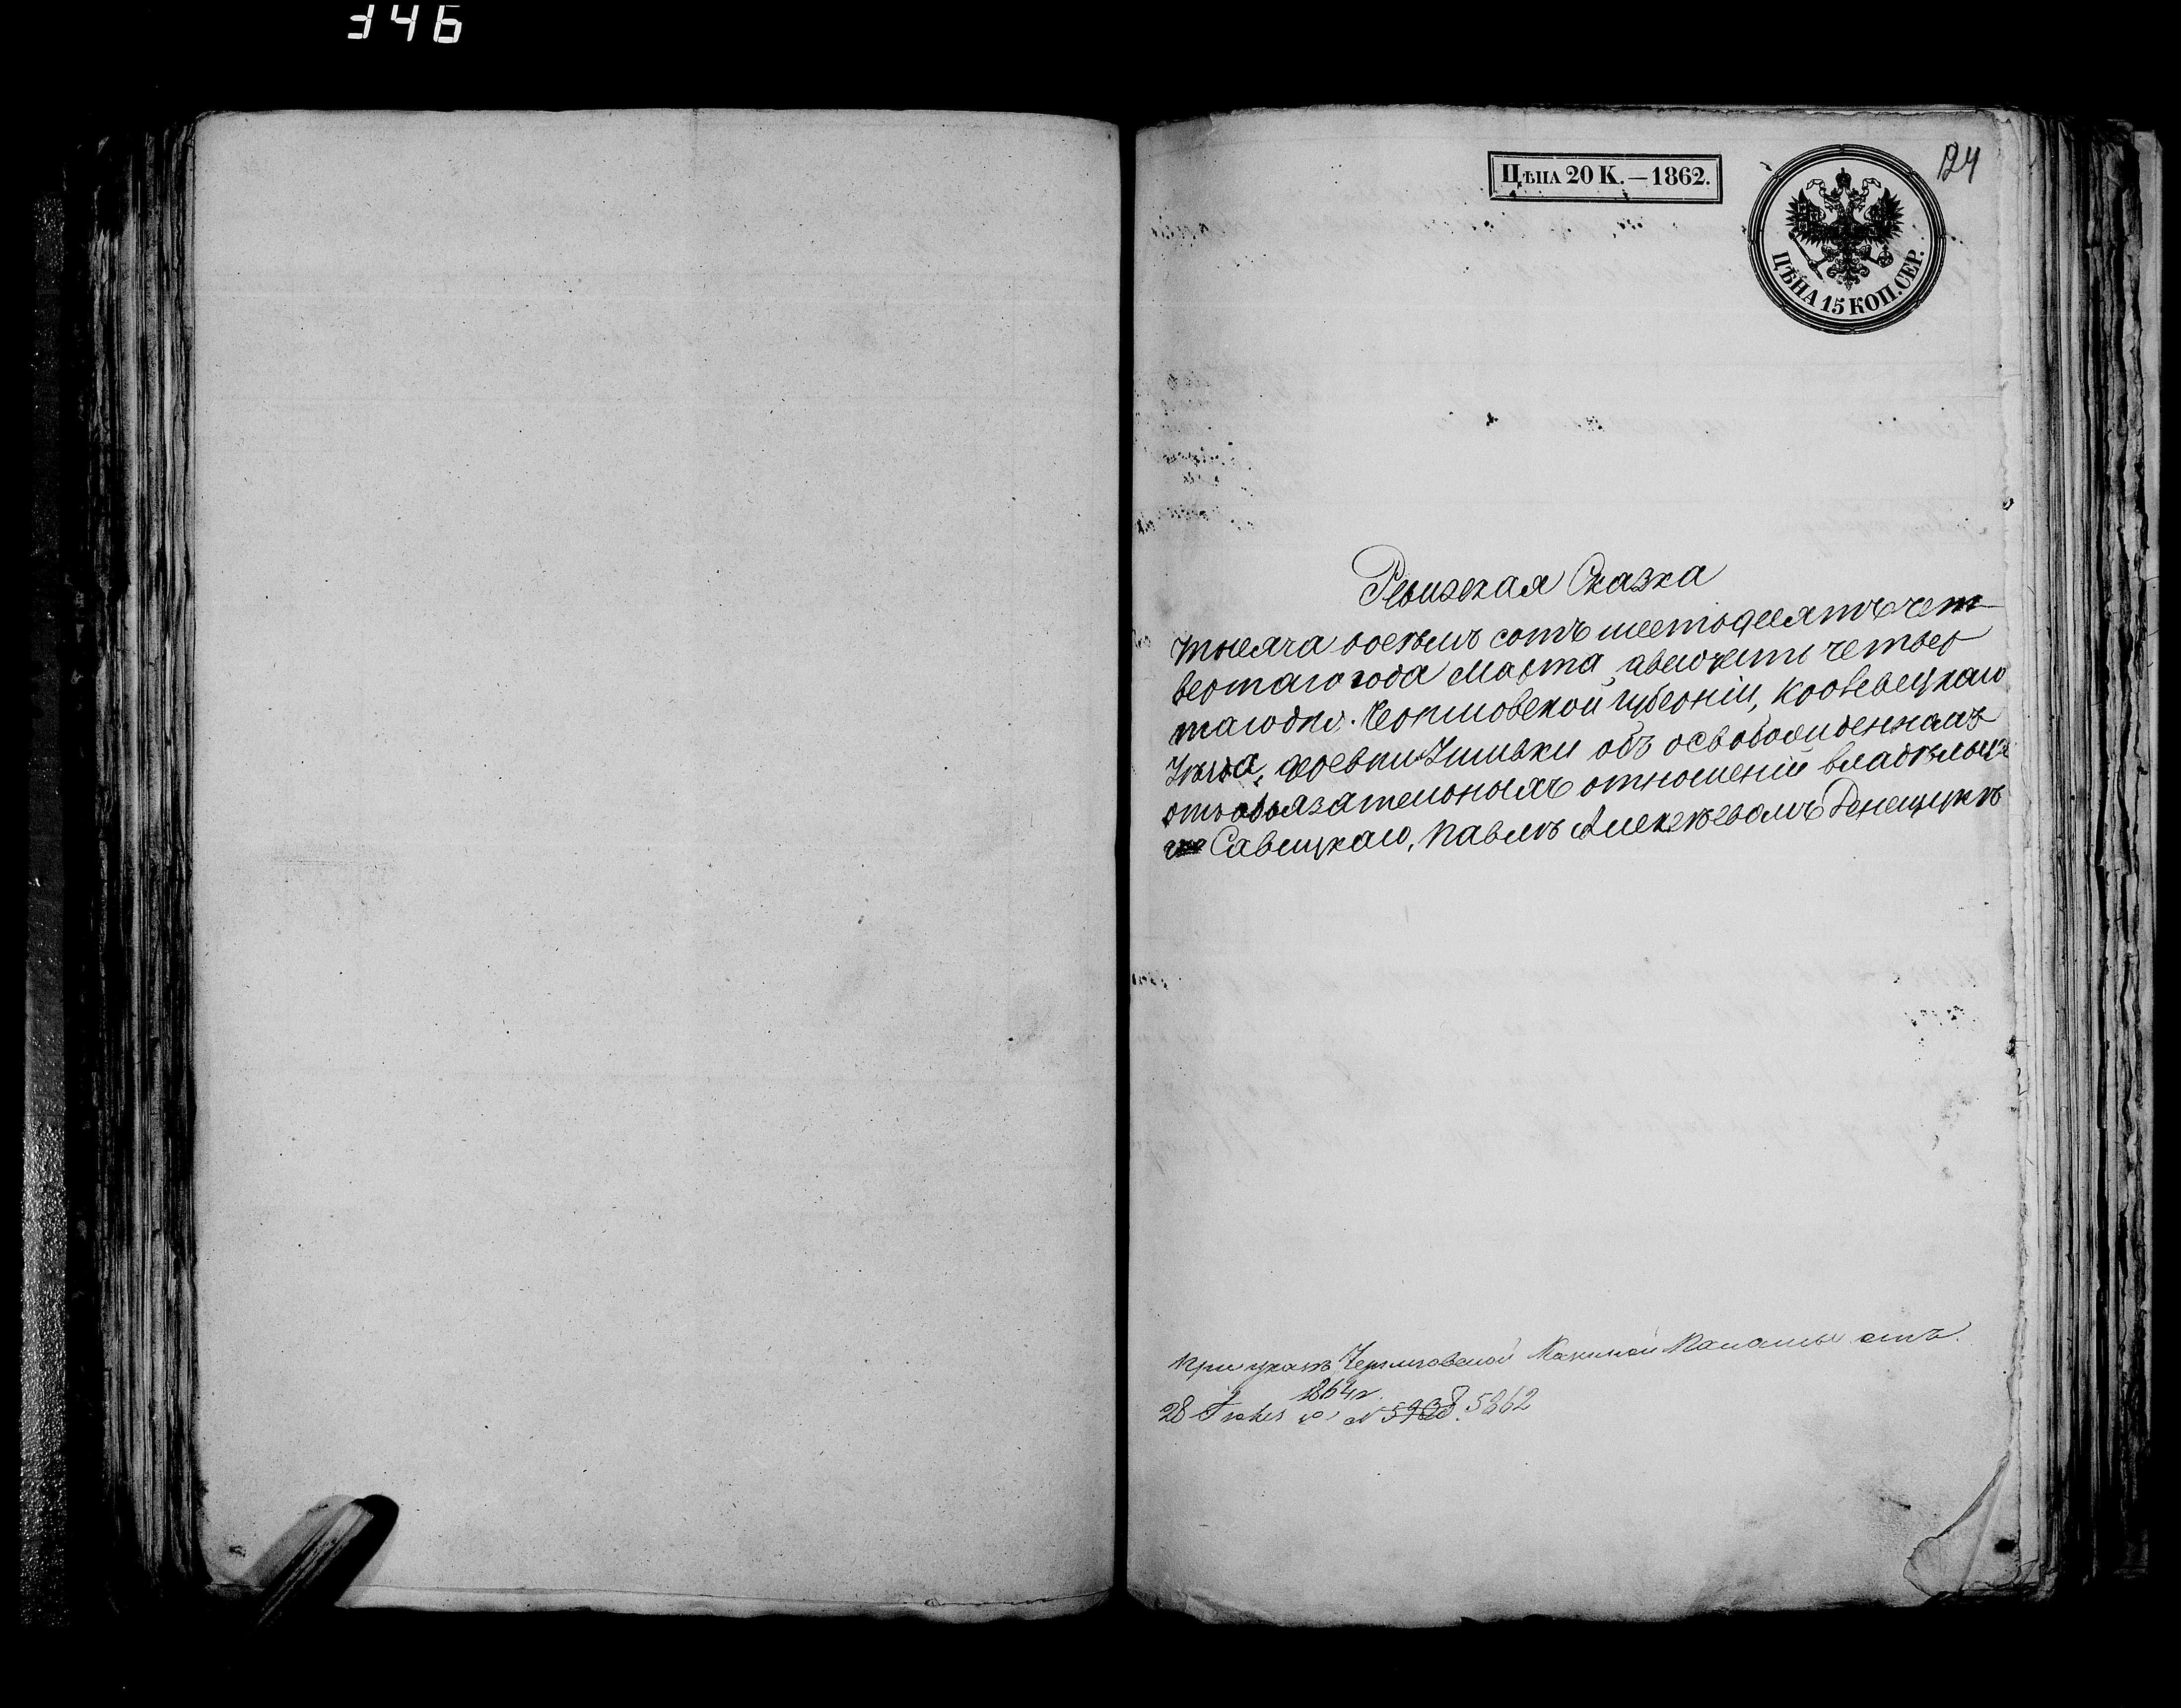 346
124
Цѣна 20 К.—1862.
ЦѢНА 15 КОП. СЕР.
Ревизская Сказка
тысяча восемь сотъ шестодесятъ чет
вертаго года Марта двадцать четвер
таго дня. Черниговской губерніи, Кролевецкаго
Уѣзда, деревни Ушивки объ освобожденномъ
отъ обязательныхъ отношеній владѣльца
Савицкаго, Павлѣ Алексѣевомъ Денещукѣ
При указѣ Черниговской Казенной Палаты отъ
1864 г.
28 за N 5938. 5862